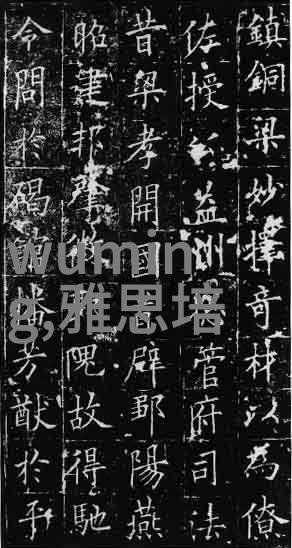 鎮銅梁妙擇奇材以為僚
佐授益州管府司法
昔梁孝開國首辟鄒陽燕
昭建邦肇徵隗故得馳
令問於碣館播芳猷於平
wumin
g,雅思培